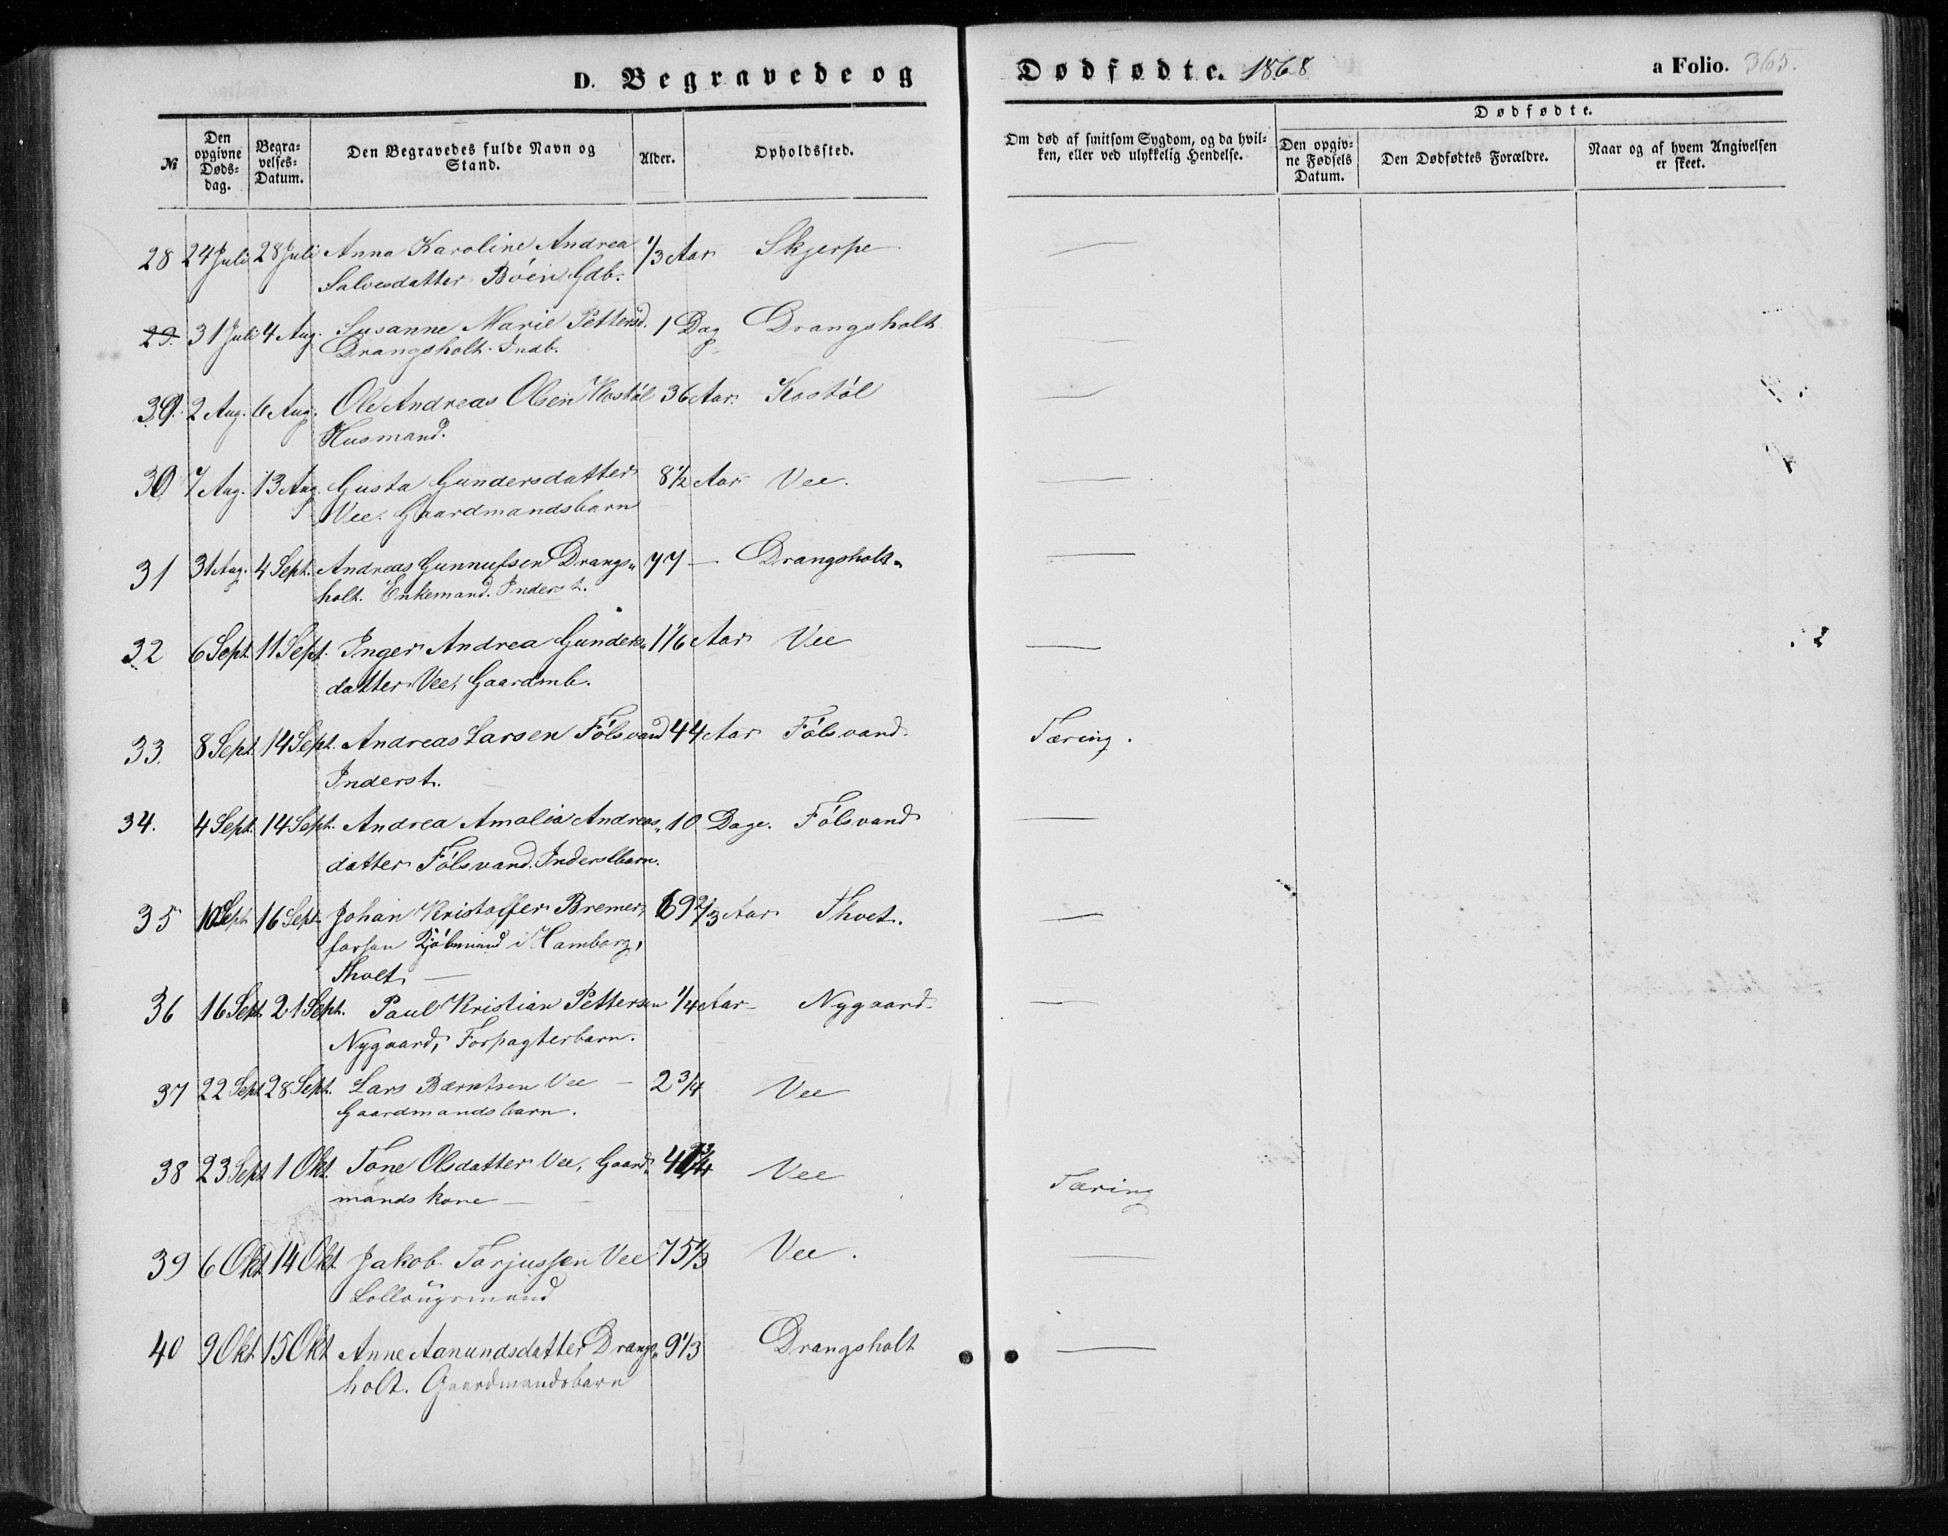 D. Begravede og Dødfødte. 1868 a Folio. 365.
Dødfødte.
№ Den opgivne Dødsdag. Begravelses-Datum. Den Begravedes fulde Navn og Stand. Alder. Opholdssted. Om død af smitsom Sygdom, og da hvilken, eller ved ulykkelig Hendelse. Den opgivne Fødsels Datum. Den Dødfødtes Forældre. Naar og af hvem Angivelsen er skeet.
28 24 Juli 28 Juli Anna Karoline Andrea 1/3 Aar Skjerpe —
Salvesdatter Böen Gdb.
29. 31 Juli 4 Aug. Susanne Marie Pettersd. 1 Dag Drangsholt —
Drangsholt. Indb.
2 Aug. 6 Aug. Ole Andreas Olsen Kostöl 36 Aar. Kostöl —
Husmand.
30 7 Aug. 13 Aug. Gusta Gundersdatter 8½ Aar Vee. —
Vee. Gaardmandsbarn
31 31 Aug. 4 Sept. Andreas Gunnufsen Drangs„ 77 — Drangsholt. —
holt. Enkemand. Inderst.
32 6 Sept. 11 Sept. Inger Andrea Gunders„ 1 1/6 Aar Vee —
datter Vee, Gaardmb.
33. 8 Sept. 14 Sept. Andreas Larsen Fölsvand 44 Aar Fölsvand. Tæring.
Inderst.
34. 4 Sept. 14 Sept. Andrea Amalia Andreas„ 10 Dage. Fölsvand —
datter Fölsvand. Inderstbarn.
35 10 Sept. 16 Sept. Johan Kristoffer Bremer, 69 2/3 Aar Thvet. —
forhen Kjöbmand i Hamborg,
Thvet —
36 16 Sept. 21 Sept. Paul Kristian Pettersen 1/4 Aar — Nygaard. —
Nygaard, Forpagterbarn.
37 22 Sept. 28 Sept. Lars Berntsen Vee — 2 3/4 Vee
Gaardmandsbarn.
38 23 Sept. 1 Okt. Tone Olsdatter Vee, Gaard„ Vee Tæring
mandskone —
39 6 Okt 14 Okt. Jakob Torjussen Vee 75 1/3 Vee. —
40 9 Okt 15 Okt Anne Aanundsdatter Drangs„ 9 1/3 Drangsholt —
holt. Gaardmandsbarn